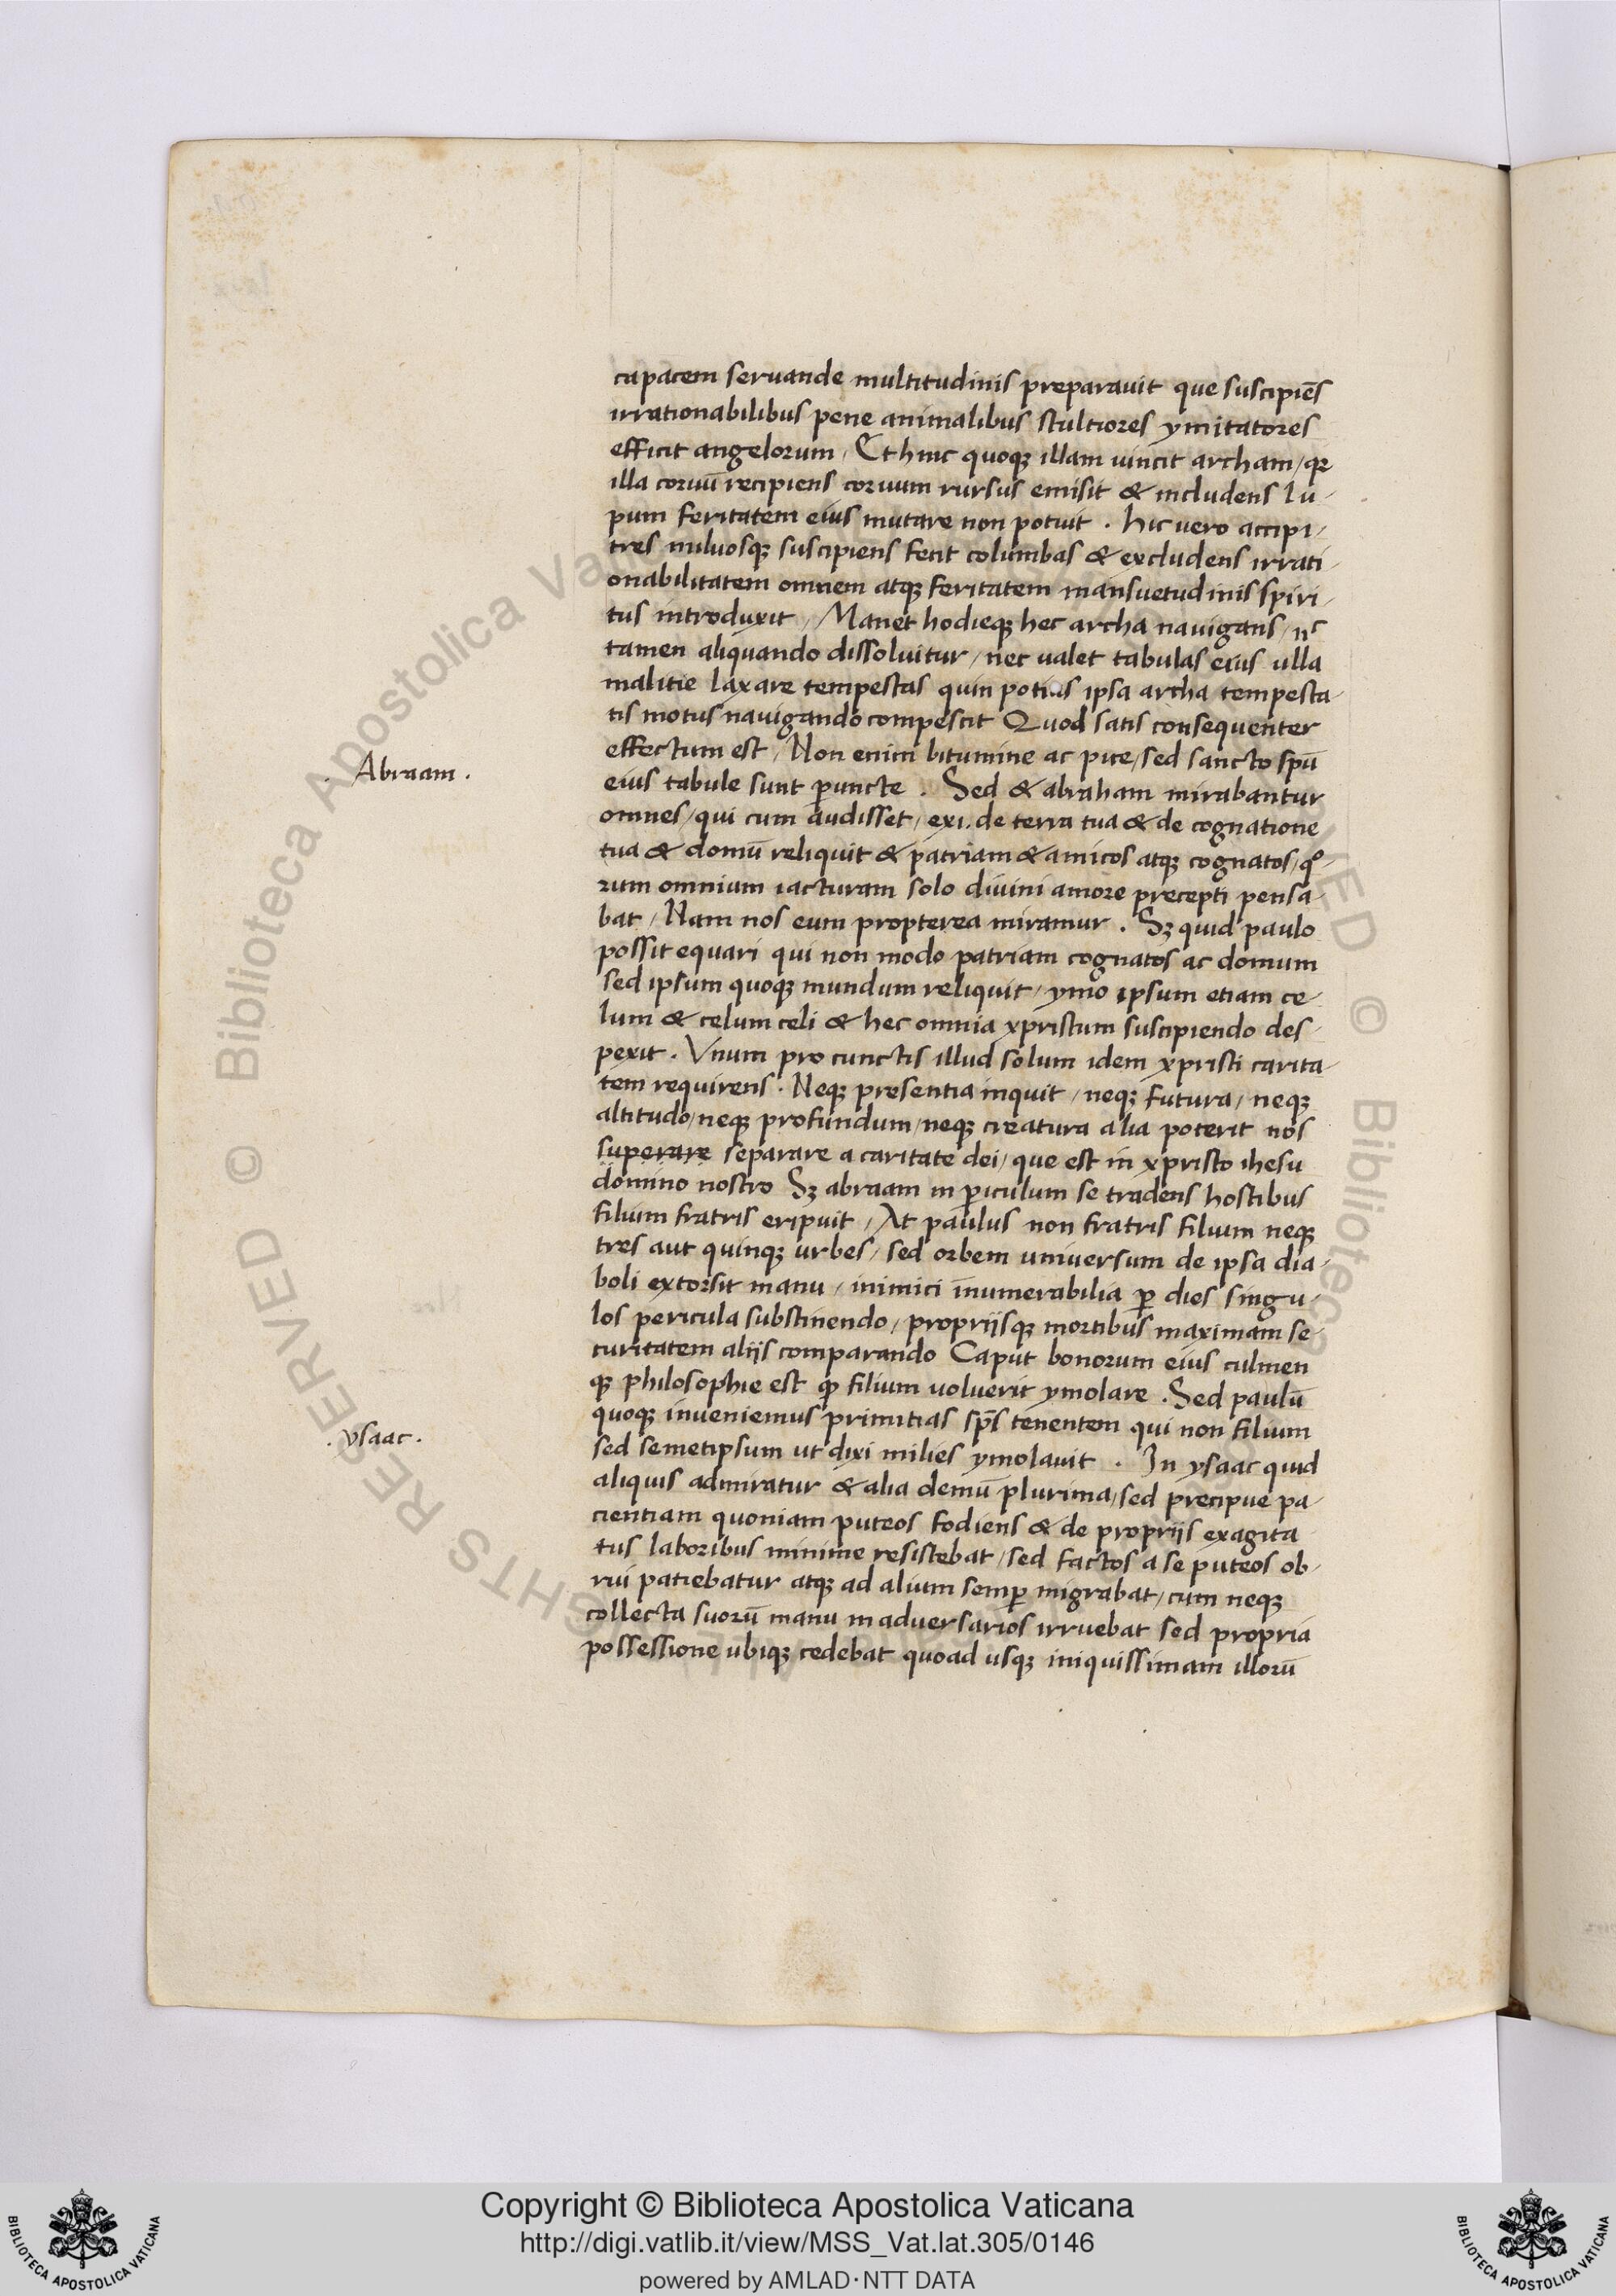 capacem seruande multitudinis preparauit que suscipiēs
irrationabilibus pene animalibus stultiores ymitatores
efficit angelorum / Et hinc quoqꝫ illam uincit archam / qꝛ
illa coruū recipiens coruum rursus emisit & includens lu-
pum feritatem eius mutare non potuit . hic uero accipi-
tres miluosqꝫ suscipiens fecit columbas & excludens irrati-
onabilitatem omnem atqꝫ feritatem mansuetudinis spiri-
tus introduxit / Manet hodieqꝫ hec archa nauigans / nc
tamen aliquando dissoluitur / nec ualet tabulas eius ulla
malitie laxare tempestas quin potius ipsa archa tempesta-
tis motus nauigando compescit Quod satis consequenter
effectum est / Non enim bitumine ac pice / sed sancto spū
. Abraam .
eius tabule sunt ꝑuncte . Sed & abraham mirabantur
omnes / qui cum audisset / exi . de terra tua & de cognatione
tua & domū reliquit & patriam & amicos atqꝫ cognatos / qo-
rum omnium iacturam solo diuini amore precepti pensa-
bat / Nam nos eum propterea miramur . Sꝫ quid paulo
possit equari qui non modo patriam cognatos ac domum
sed ipsum quoqꝫ mundum reliquit / ymo ipsum etiam ce-
lum & celum celi & hec omnia xpristum suscipiendo des-
pexit . Vnum pro cunctis illud solum idem xpristi carita-
tem requirens . Neqꝫ presentia inquit / neqꝫ futura / neqꝫ
altitudo / neqꝫ profundum / neqꝫ creatura alia poterit nos
superare separare a caritate dei / que est in xpristo ihesu
domino nostro Sꝫ abraam in ꝑiculum se tradens hostibus
filium fratris eripuit / At paulus non fratris filium neqꝫ
tres aut quinqꝫ urbes / sed orbem uniuersum de ipsa dia-
boli extorsit manu / inimici īnumerabilia ꝑ dies singu-
los pericula substinendo / proprijsqꝫ mortibus maximam se-
curitatem alijs comparando Caput bonorum eius culmen
qꝫ philosophie est ꝙ filium uoluerit ymolare . Sed paulū
quoqꝫ inueniemus primitias sp̄s tenentem qui non filium
. ysaac .
sed semetipsum ut dixi milies ymolauit . In ysaac quid
aliquis admiratur & alia demū plurima / sed precipue pa-
cientiam quoniam puteos fodiens & de proprijs exagita
tus laboribus minime resistebat / sed factos a se puteos ob-
rui patiebatur atqꝫ ad alium semꝑ migrabat / cum neqꝫ
collecta suorū manu in aduersarios irruebat sed propria
possessione ubiqꝫ cedebat quoad usqꝫ iniquissimam illorū
© Biblioteca Apostolica Vaticana
RIGHTS RESERVED
Copyright © Biblioteca Apostolica Vaticana
http://digi.vatlib.it/view/MSS_Vat.lat.305/0146
powered by AMLAD·NTT DATA
BIBLIOTECA APOSTOLICA VATICANA
BIBLIOTECA APOSTOLICA VATICANA